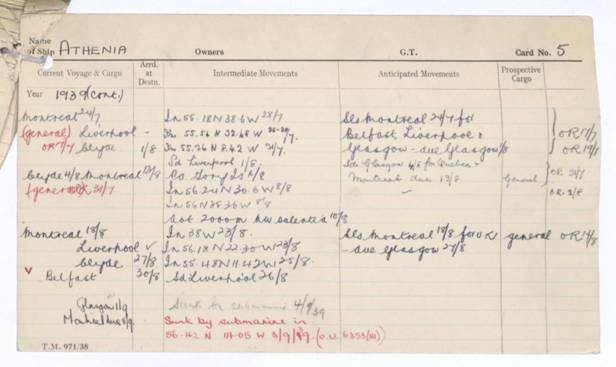 Name of Ship ATHENIA Owners G.T. Card No. 5
Current Voyage & Cargo Arrd. at Destn. Intermediate Movements Anticipated Movements Prospective Cargo
Year 1939 (cont.)
Montreal 24/7 In 55.18N 38.6W 28/7 Sls Montreal 24/7 for
(general) Liverpool - In 55.56 N 32.48 W /7. Belfast Liverpool & OR 17/7
OR 17/7 Clyde 1/8 In 55.26 N 8.42 W 31/7. Glasgow - due Glasgow /8 OR 19/7
Sd Liverpool 1/8. Sds Glasgow 4/8 for Quebec &
Clyde 4/8 Montreal 13/8 /8 Montreal due 13/8 General OR 31/7
(general) 31/7 In 56.24 N 30.6 W /8 - OR 2/8
In 56N 35.36 W 8/8
2000 m NW Valentia 10/8
Montreal 18/8 In 38W 23/8. Sls Montreal 18/8 for UK general OR 14/8
Liverpool v In 56.18N 22.30W 23/8 - due Glasgow 27/8
Clyde 27/8 In 55.48N 11.42W 25/8.
v Belfast 30/8 Sd Liverpool 26/8
Glasgow 1/9 Sunk by submarine 4/9/39
Montreal due /9. Sunk by submarine in
56.42 N 14.05 W 3/9/39.
T.M. 971/38